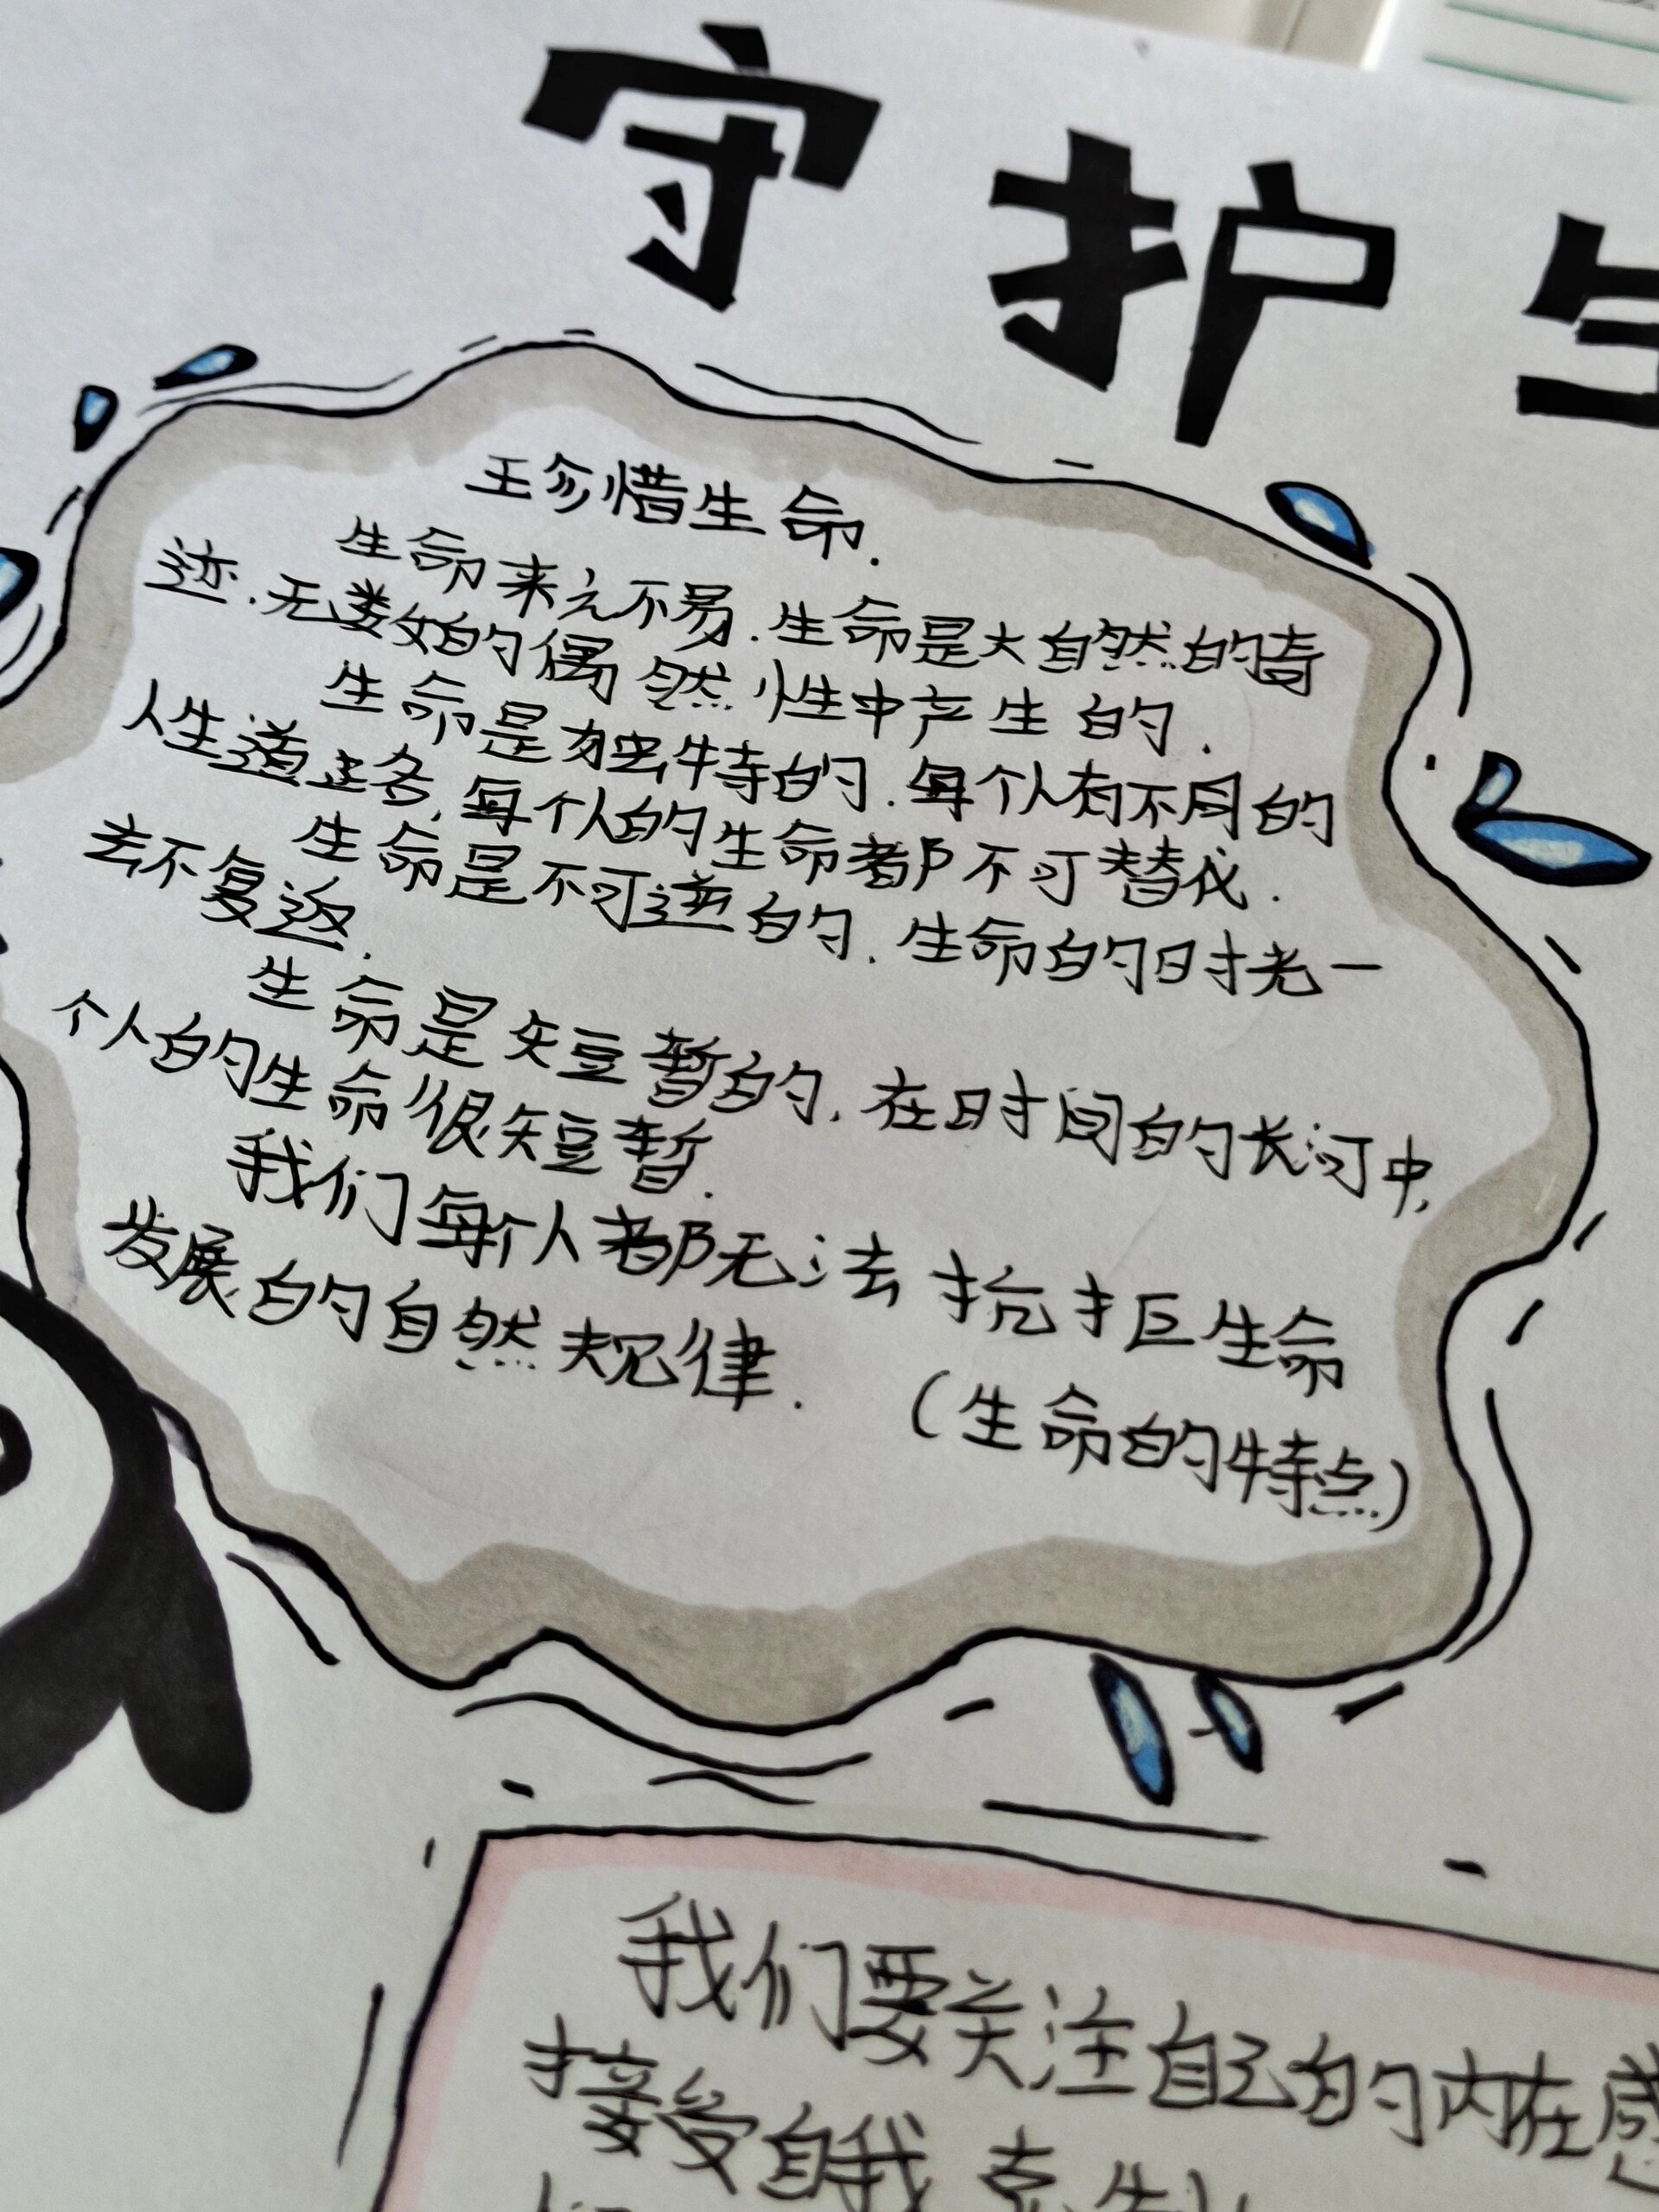 守护生
珍惜生命.
生命来之不易.生命是大自然的奇
迹.无数的偶然性中产生的.
生命是独特的.每个人有不同的
人生道路,每个人的生命都不可替代.
生命是不可逆的.生命的时光一
去不复返.
生命是短暂的.在时间的长河中,
个人的生命很短暂.
我们每个人都无法抗拒生命
发展的自然规律.
(生命的特点)
我们要关注自己的内在感
接受自我